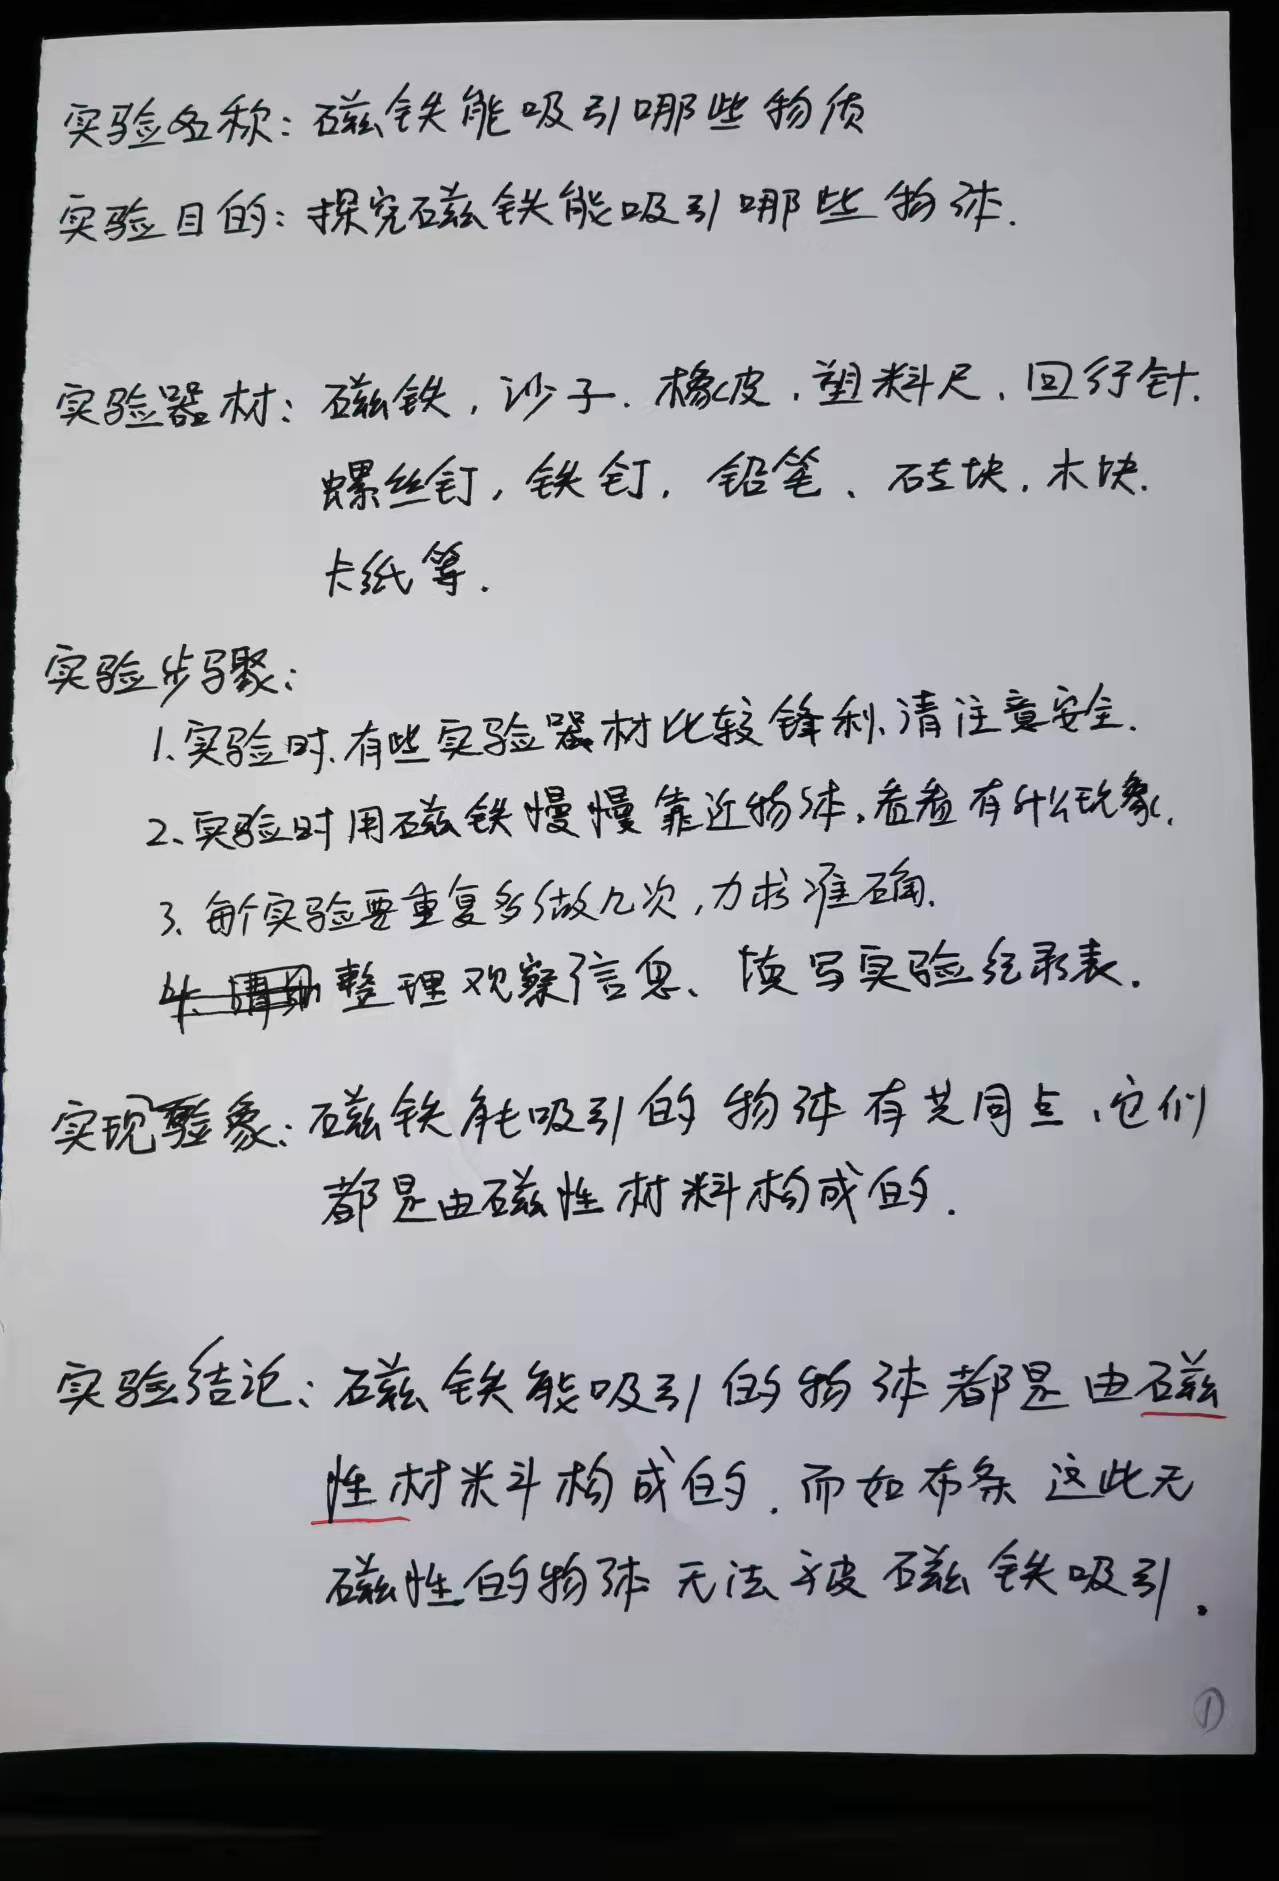 实验名称：磁铁能吸引哪些物质
实验目的：探究磁铁能吸引哪些物体.
实验器材：磁铁，沙子.橡皮，塑料尺、回行针.
螺丝钉，铁钉，铅笔、砖块，木块.
卡纸等.
实验步骤：
1.实验时、有些实验器材比较锋利、请注意安全.
2、实验时用磁铁慢慢靠近物体，看看有什么现象.
3、每个实验要重复多做几次，力求准确.
4、整理观察信息、填写实验纪录表.
实现验象：磁铁能吸引的物体有共同点、它们
都是由磁性材料构成的.
实验结论：磁铁能吸引的物体都是由磁
性材料构成的.而如布条这此无
磁性的物体无法被磁铁吸引。
①